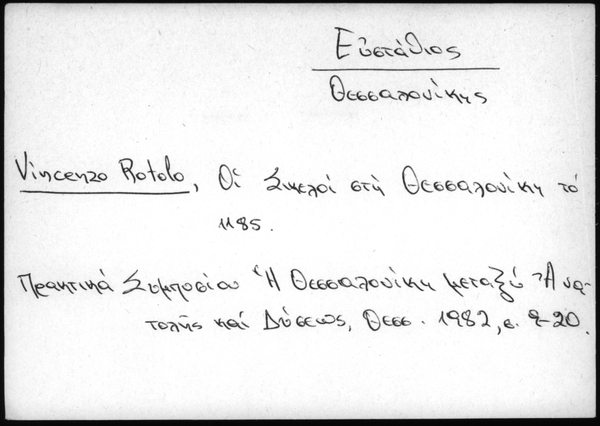 Εὐστάθιος
Θεσσαλονίκης
Vincenzo Rotolo, Οἱ Σικελοί στή Θεσσαλονίκη τό
1185.
Πρακτικά Συμποσίου Ἡ Θεσσαλονίκη μεταξύ Ἀνα-
τολῆς καί Δύσεως, Θεσσ. 1982, σ. 9-20.